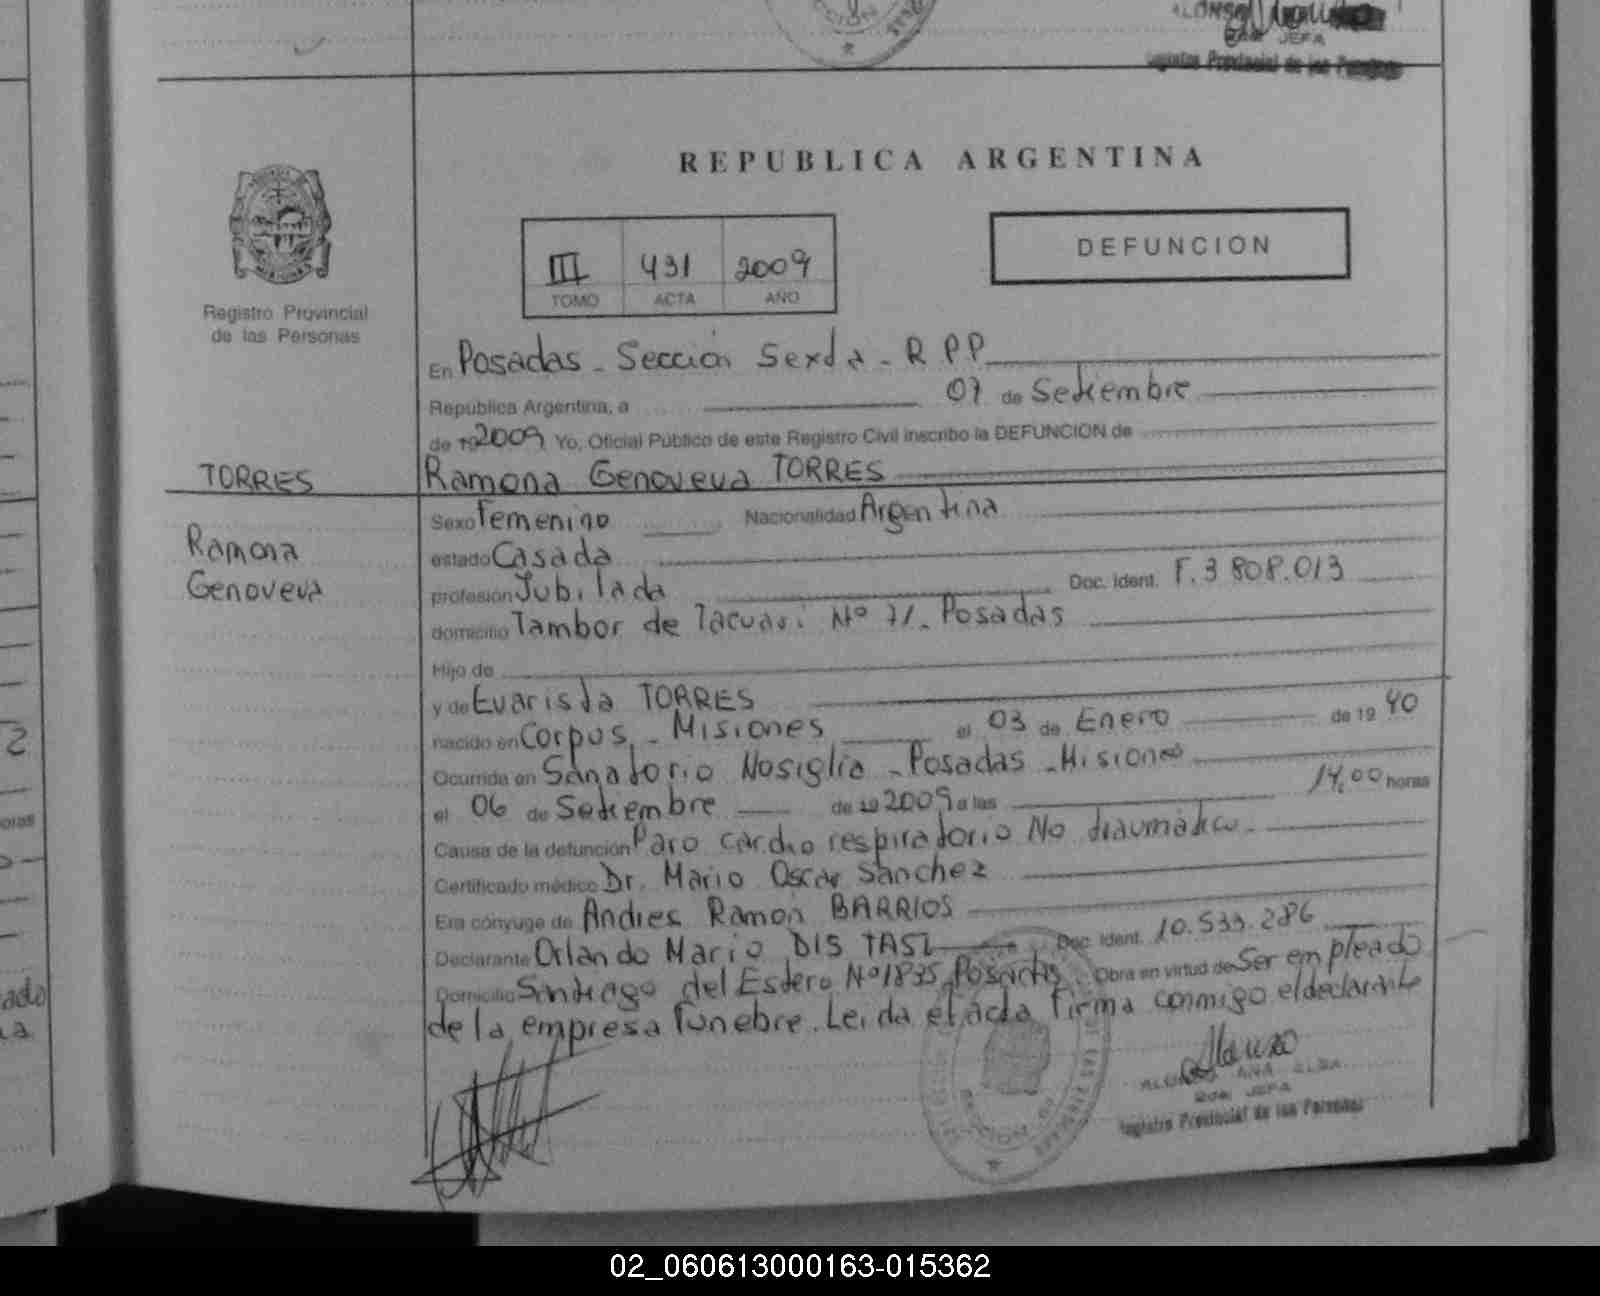 REPUBLICA ARGENTINA
Registro Provincial
de las Personas
III 431 2009
TOMO ACTA AÑO
DEFUNCION
En Posadas - Sección Sexta - R P P
República Argentina, a 07 de Setiembre
de 19 2009 Yo, Oficial Público de este Registro Civil inscribo la DEFUNCION de
TORRES
Ramona Genoveva TORRES
Ramona
Genoveva
Sexo Femenino Nacionalidad Argentina
estado Casada
profesión Jubilada Doc. Ident. F. 3 808.013
domicilio Tambor de Tacuari Nº 71 - Posadas
Hijo de
y de Evarista TORRES
nacido en Corpus - Misiones el 03 de Enero de 19 40
Ocurrida en Sanatorio Nosiglia - Posadas - Misiones
el 06 de Setiembre de 19 2009 a las 14,00 horas
Causa de la defunción Paro cardio respiratorio No traumático
Certificado médico Dr. Mario Oscar Sanchez
Era cónyuge de Andres Ramón BARRIOS
Declarante Orlando Mario DIS TASI Doc. Ident. 10.533.286
Domicilio Santiago del Estero Nº 1835 Posadas Obra en virtud de Ser empleado
de la empresa funebre. Leida el acta firma conmigo el declarante
ALONSO ANA ELSA
JEFA
Registro Provincial de las Personas
02_060613000163-015362